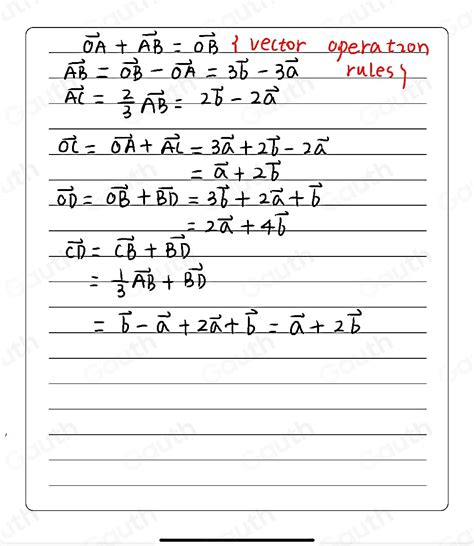 →OA + →AB = →OB { vector operation
→AB = →OB - →OA = 3→b - 3→a rules}
→AC = 2/3 →AB = 2→b - 2→a
→OC = →OA + →AC = 3→a + 2→b - 2→a
= →a + 2→b
→OD = →OB + →BD = 3→b + 2→a + →b
= 2→a + 4→b
→CD = →CB + →BD
= 1/3 →AB + →BD
= →b - →a + 2→a + →b = →a + 2→b
Gauth